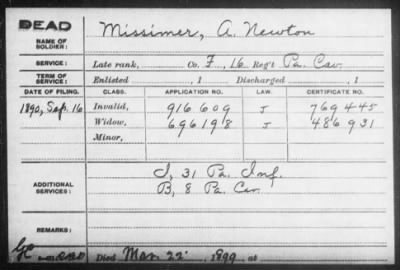 DEAD
NAME OF SOLDIER: Missimer, A. Newton
SERVICE: Late rank, Co. F, 16 Reg't Pa. Cav.
TERM OF SERVICE: Enlisted , 1 Discharged , 1
DATE OF FILING. CLASS. APPLICATION NO. LAW. CERTIFICATE NO.
1890, Sep. 16 Invalid, 916609 J 769445
Widow, 696198 J 486931
Minor,
ADDITIONAL SERVICES: I, 31 Pa. Inf.
B, 8 Pa. Cav.
REMARKS:
Died Mar. 22, 1899, at